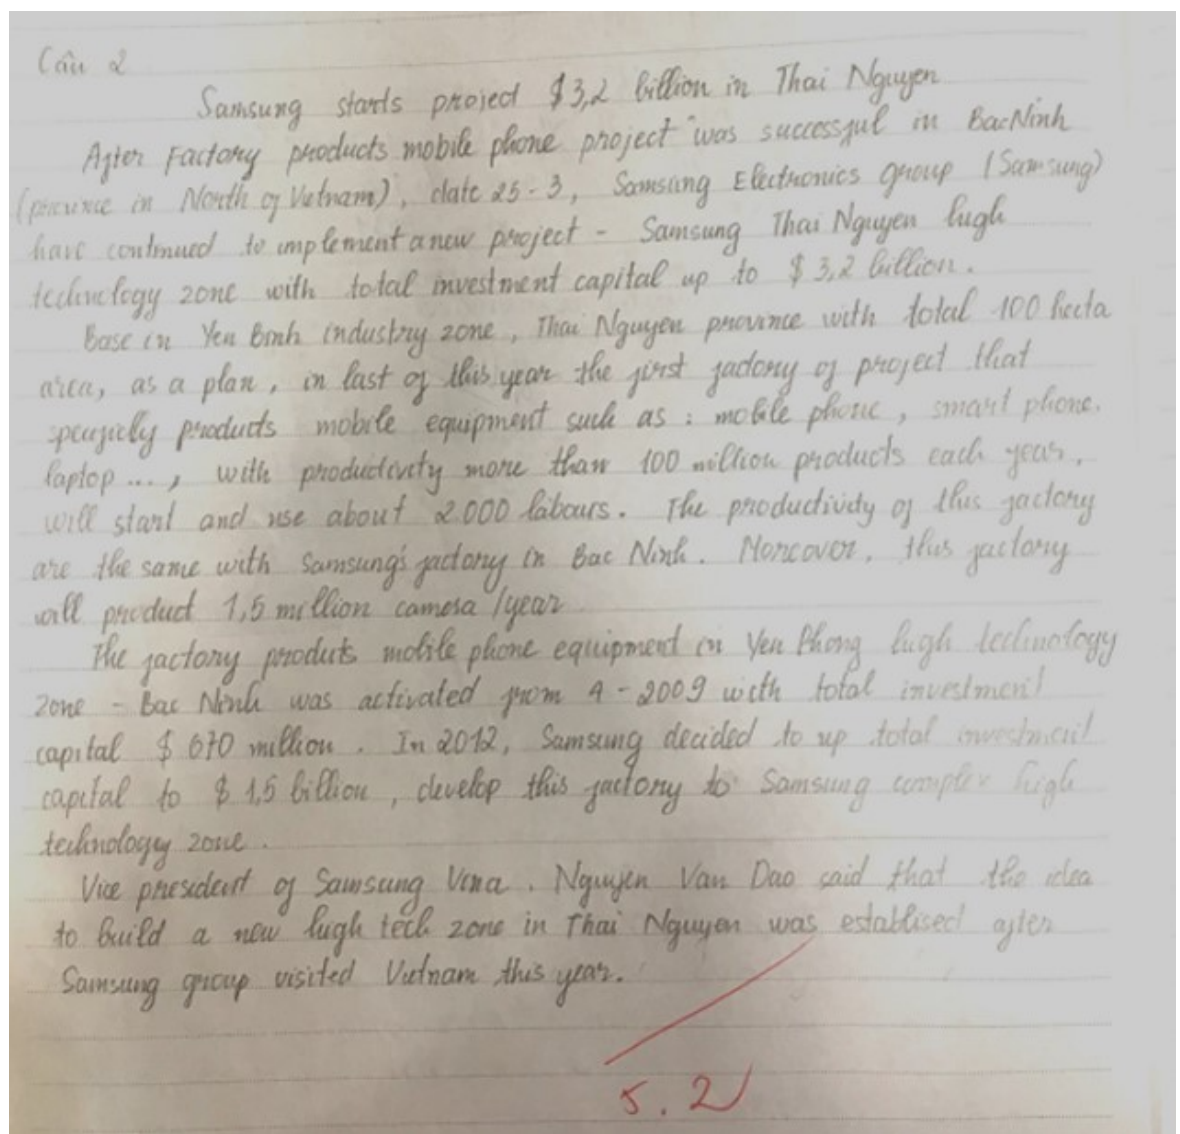 Câu 2
Samsung starts project $3,2 billion in Thai Nguyen
After Factory products mobile phone project was successful in Bac Ninh
(province in North of Vietnam), date 25-3, Samsung Electronics group (Samsung)
have continued to implement a new project - Samsung Thai Nguyen high
technology zone with total investment capital up to $3,2 billion.
Base in Yen Binh industry zone, Thai Nguyen province with total 100 hecta
area, as a plan, in last of this year the first factory of project that
products mobile equipment such as : mobile phone, smart phone.
laptop ..., with productivity more than 100 million products each year,
will start and use about 2.000 labours. The productivity of this factory
are the same with Samsung's factory in Bac Ninh. Moreover, this factory
will product 1,5 million camera /year
The factory products mobile phone equipment in Yen Phong high technology
zone - Bac Ninh was activated from 4-2009 with total investment
capital $ 670 million. In 2012, Samsung decided to up total investment
capital to $ 1,5 billion, develop this factory to Samsung complex high
technology zone.
Vice president of Samsung Vina. Nguyen Van Dao said that the idea
to build a new high tech zone in Thai Nguyen was establised after
Samsung group visited Vietnam this year.
5.2